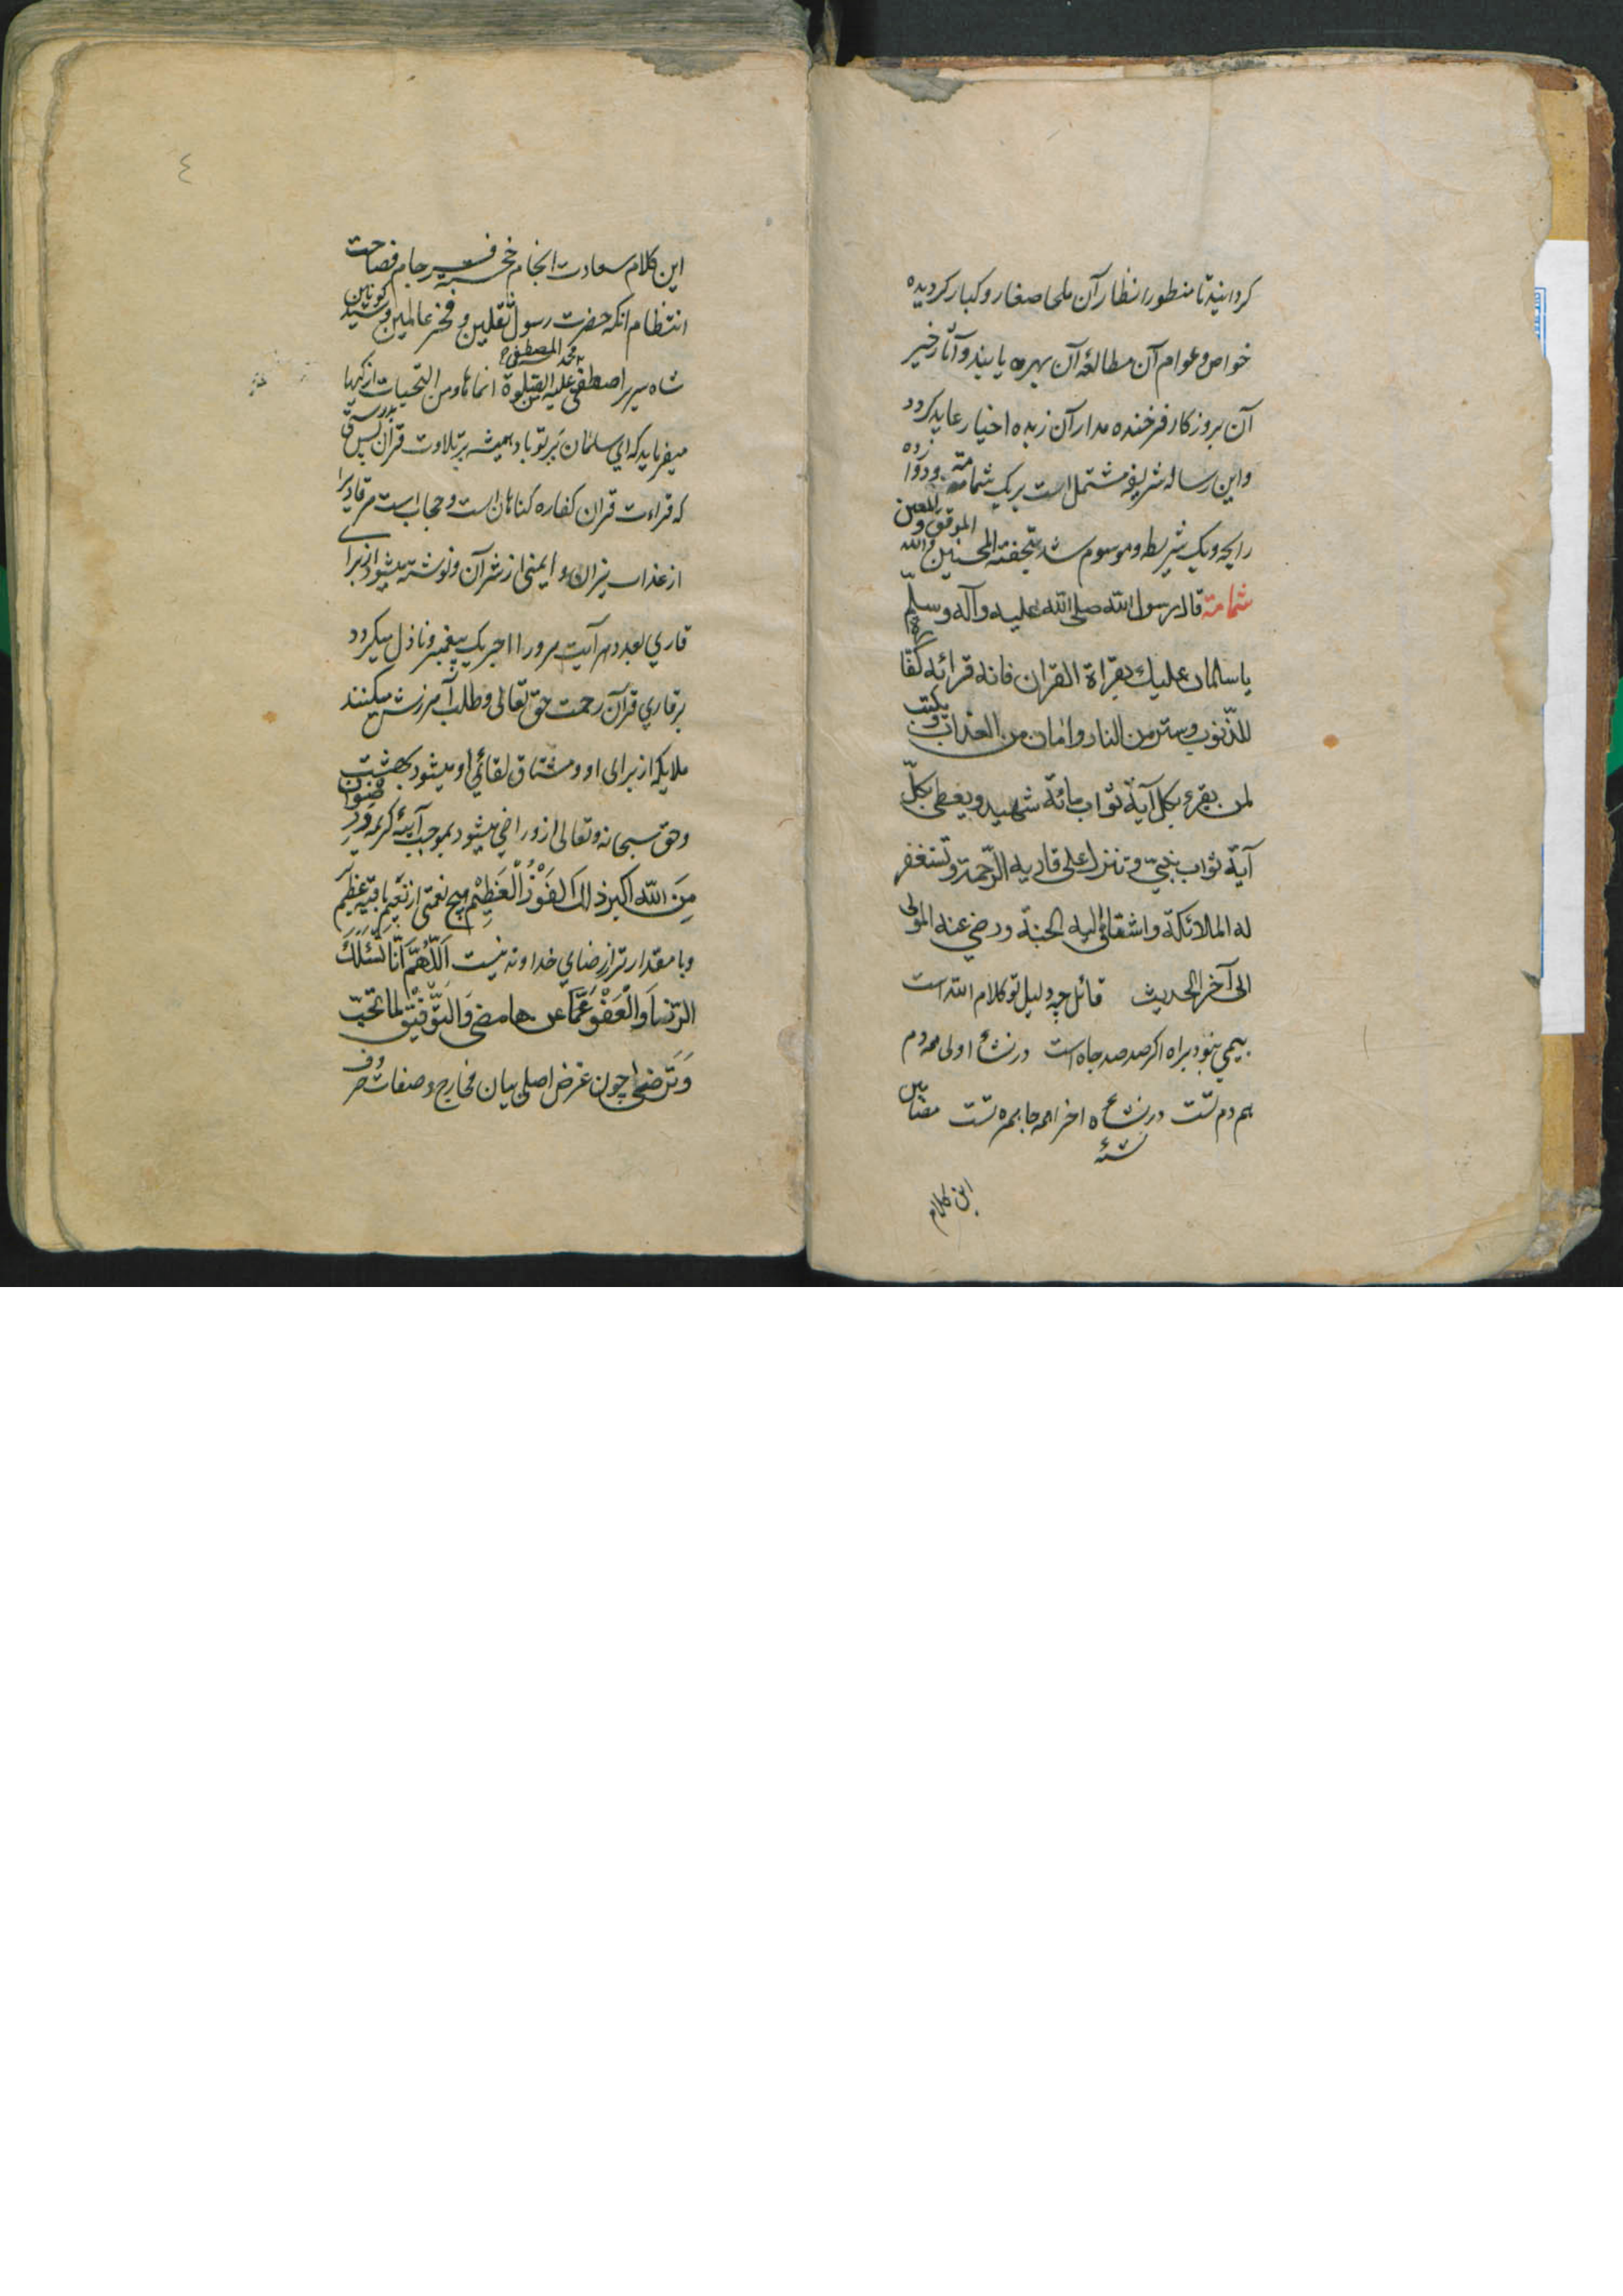 کردانید تا منظور انظار آن ملجا صغار و کبار کردیده
خواص و عوام آن مطالعهٔ آن بهره یابند و آثار خیر
آن بروزکار فرخنده مدار آن زبده اخیار عاید کردد
واین رساله شریفه مشتمل است بر یک شمامة ودوازده
رایحه ویک شریطه وموسوم شد بتحفته المحسنین والله الموفق والمعین
شمامة قال رسول الله صلی الله علیه وآله وسلّم
یا سلمان علیك بقراة القران فانه قرائه کفارة
للذّنوب وستر من النار وامان من العذاب ویکتب
لمن یقرء بکل آیة ثواب مائة شهید ویعطی بکلّ
آیة ثواب نبیّ وتنزل علی قاریه الرّحمة وتستغفر
له الملائکة واشتقاق الیه الجنة ورضی عنه المولی
الی آخر الحدیث قائل چو دلیل تو کلام الله است
بیمی نبود براه اکر صد صد چاه است در نشاء اولی همه دم
هم دم تست در نشاءه اخر همه جا همره تست مضامین
نشئه
این کلام
٤
این کلام سعادت انجام خجسته فرجام فصاحت
انتظام انکه حضرت رسول ثقلین و فخر عالمین وسید کونین
شاه سریر اصطفی محمد المصطفی علیه من الصلوة انماها ومن التحیات ازکیها
میفرماید که ای سلمان بر تو باد همیشه بر تلاوت قرآن پس بدرستی
که قراءت قران کفاره کناهان است و حجاب است مر قاریرا
از عذاب نیران و ایمنی از شر آن و نوشته میشود از برای
قاری بعدد هر آیت مر ورا اجر یک پیغمبر و نازل میکردد
بر قاری قرآن رحمت حق تعالی و طلب آمرزش میکنند
ملایکه از برای او و مشتاق لقائی او میشود بهشت
وحق سبحانه و تعالی از و راضی میشود بموجب آیهٔ کریمه وَرِضْوَان
مِنَ الله اکبر ذلك الفَوْزُ الْعَظِیْم هیچ نعمتی از نَعیم باقیه عظیم
وبا مقدارتر از رضای خداوند نیست اَللّٰهُمَّ اَنّا نَسْئَلُكَ
الرّضا وَالْعَفْوَ عَمَّا عن ما مضی وَالتَّوْفیْق لما تحبّ
وَتَرضی چون غرض اصلی بیان مخارج و صفات حروف